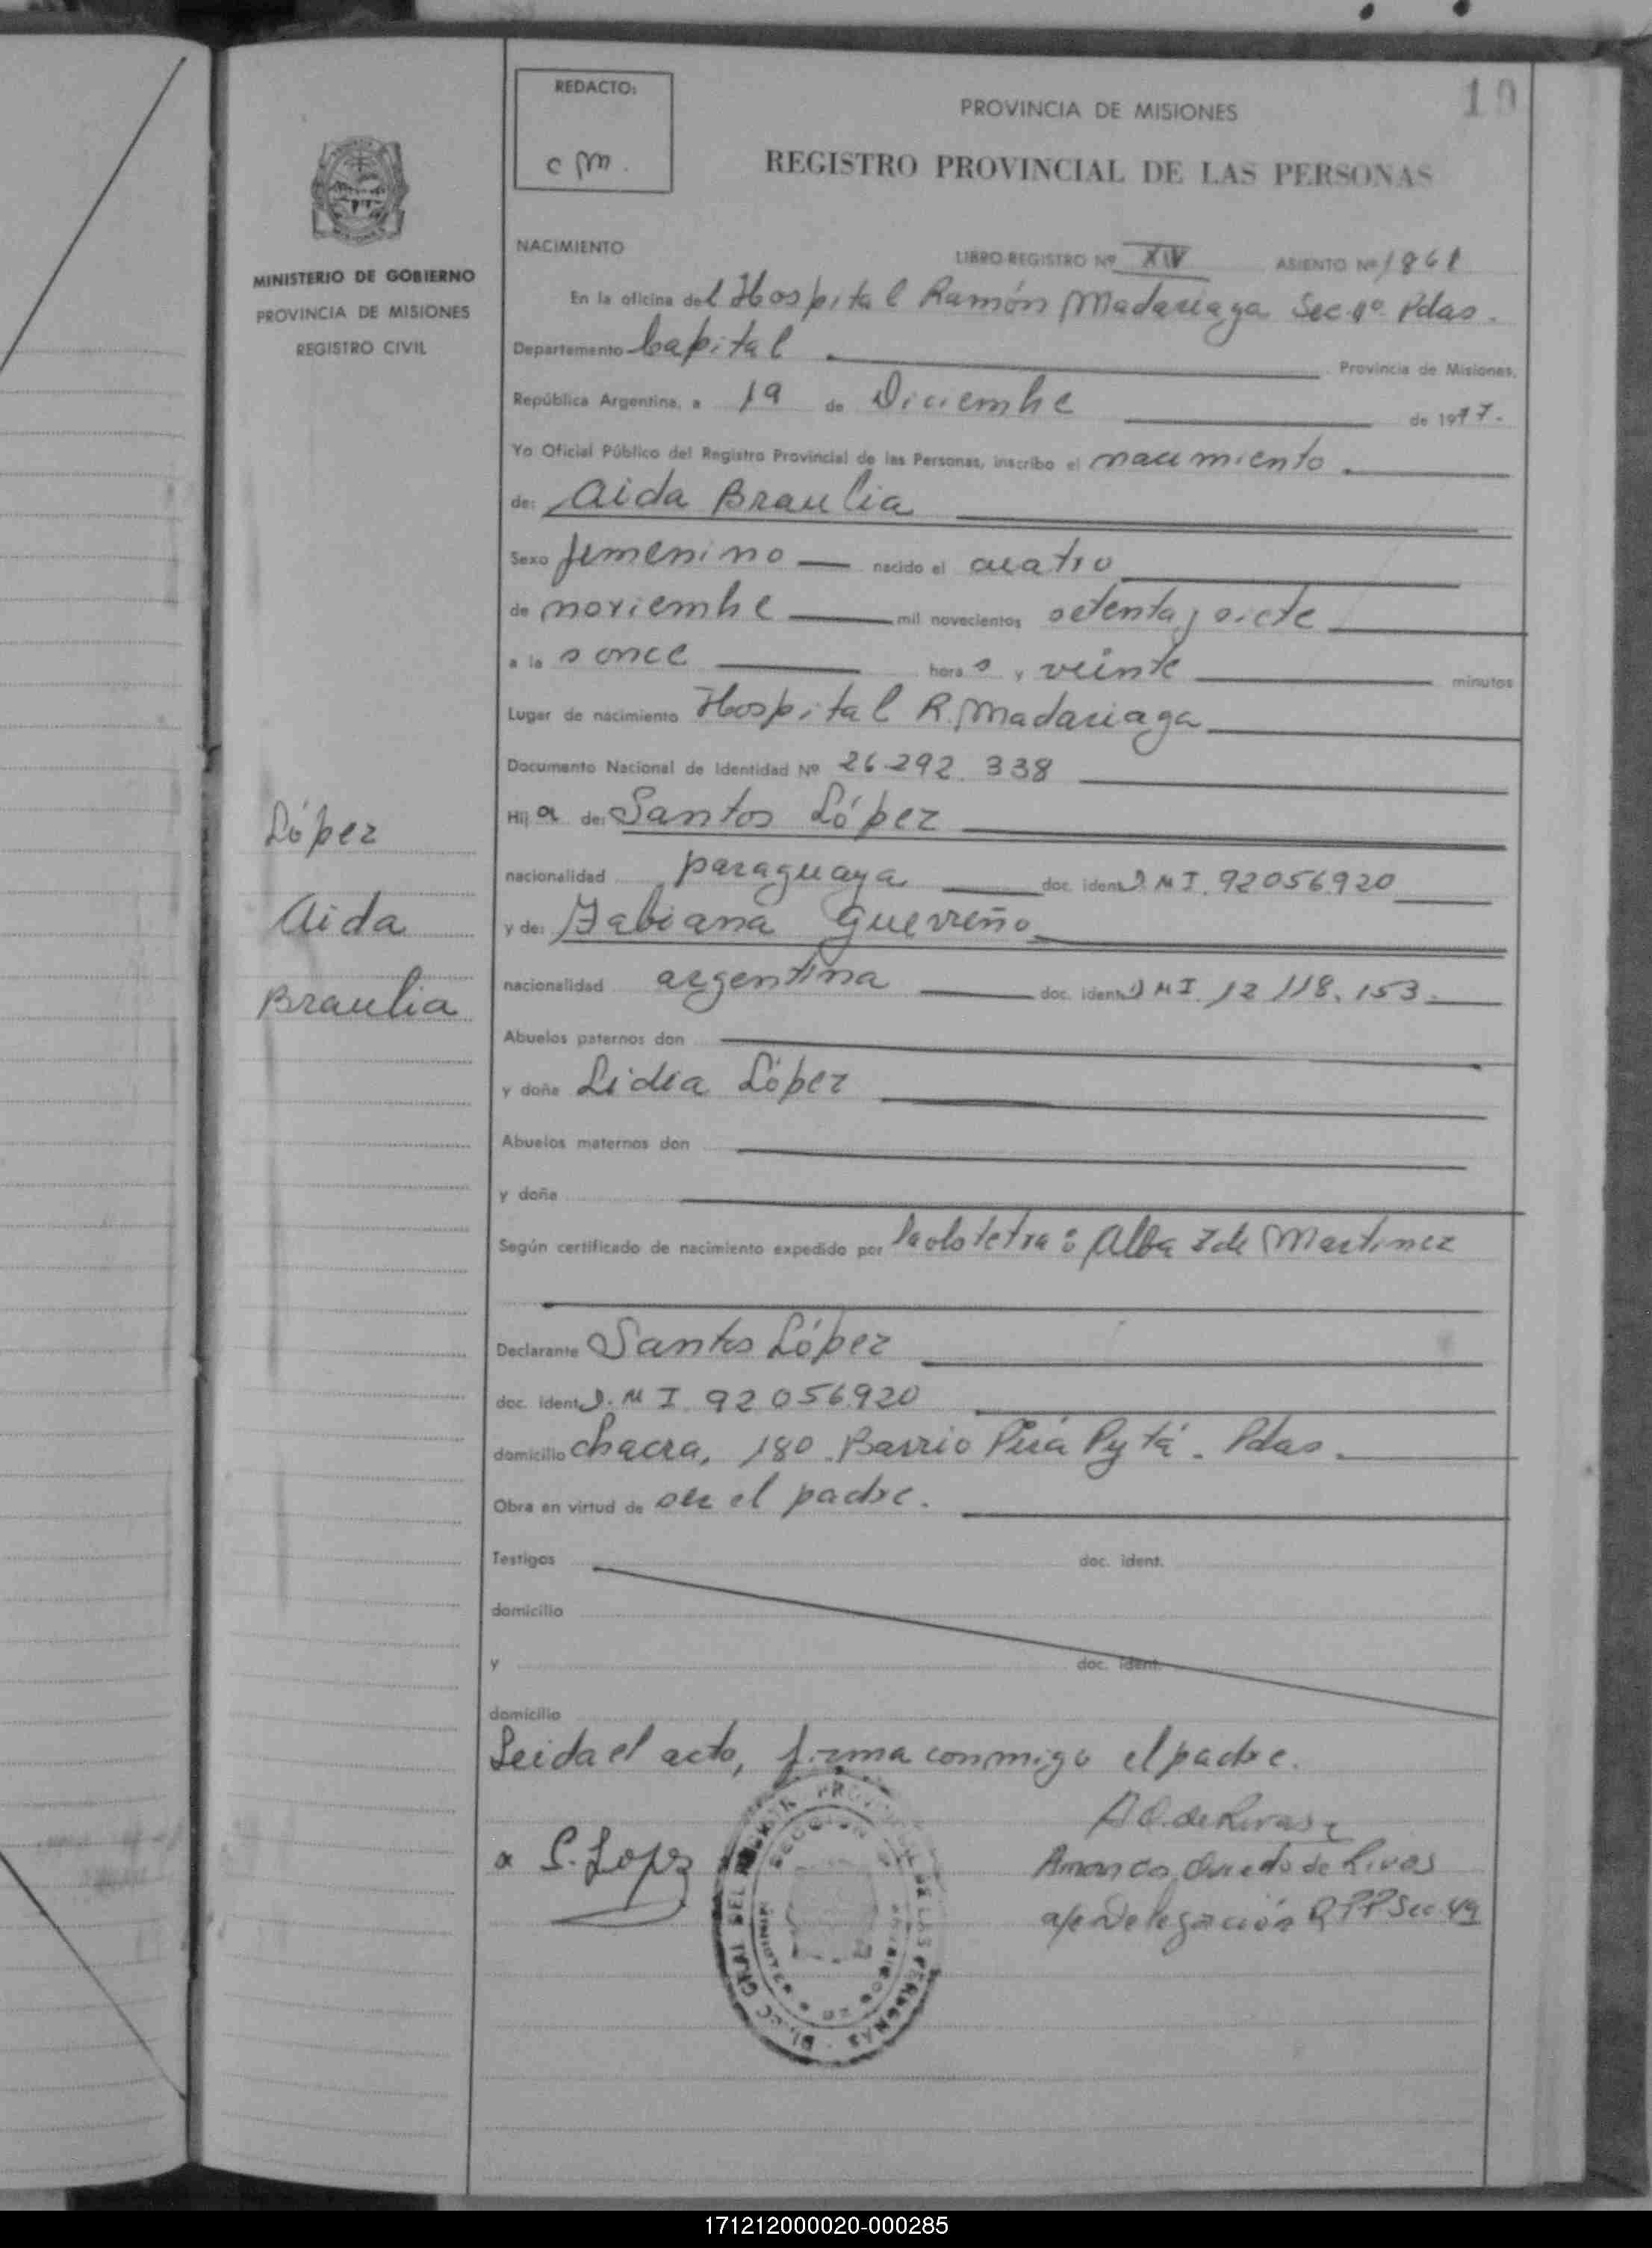 REDACTO:
c m.
PROVINCIA DE MISIONES
10
REGISTRO PROVINCIAL DE LAS PERSONAS
MINISTERIO DE GOBIERNO
PROVINCIA DE MISIONES
REGISTRO CIVIL
López
Aida
Braulia
NACIMIENTO
LIBRO REGISTRO Nº XIV ASIENTO Nº 1861
En la oficina del Hospital Ramón Madariaga Sec. Pdas.
Departamento Capital Provincia de Misiones,
República Argentina, a 19 de Diciembre de 1977.
Yo Oficial Público del Registro Provincial de las Personas, inscribo el nacimiento
de: Aida Braulia
Sexo femenino nacido el cuatro
de noviembre mil novecientos setenta y siete
a la s once hora s y veinte minutos
Lugar de nacimiento Hospital R. Madariaga
Documento Nacional de Identidad Nº 26.292.338
Hij a de: Santos López
nacionalidad paraguaya doc. ident. D M I. 92056920
y de: Fabiana Guerreño
nacionalidad argentina doc. ident. D M I. 12 118.153.
Abuelos paternos don
y doña Lidia López
Abuelos maternos don
y doña
Según certificado de nacimiento expedido por Alba de Martinez
Declarante Santos López
doc. ident. D. M I. 92 056920
domicilio chacra, 180 Barrio Pirá Pytá. Pdas.
Obra en virtud de ser el padre.
Testigos doc. ident.
domicilio
y doc. ident.
domicilio
Leida el acto, firma conmigo el padre.
a S. Lopez
de Rivas
de Rivas
Delegación R.P.P Sec
171212000020-000285